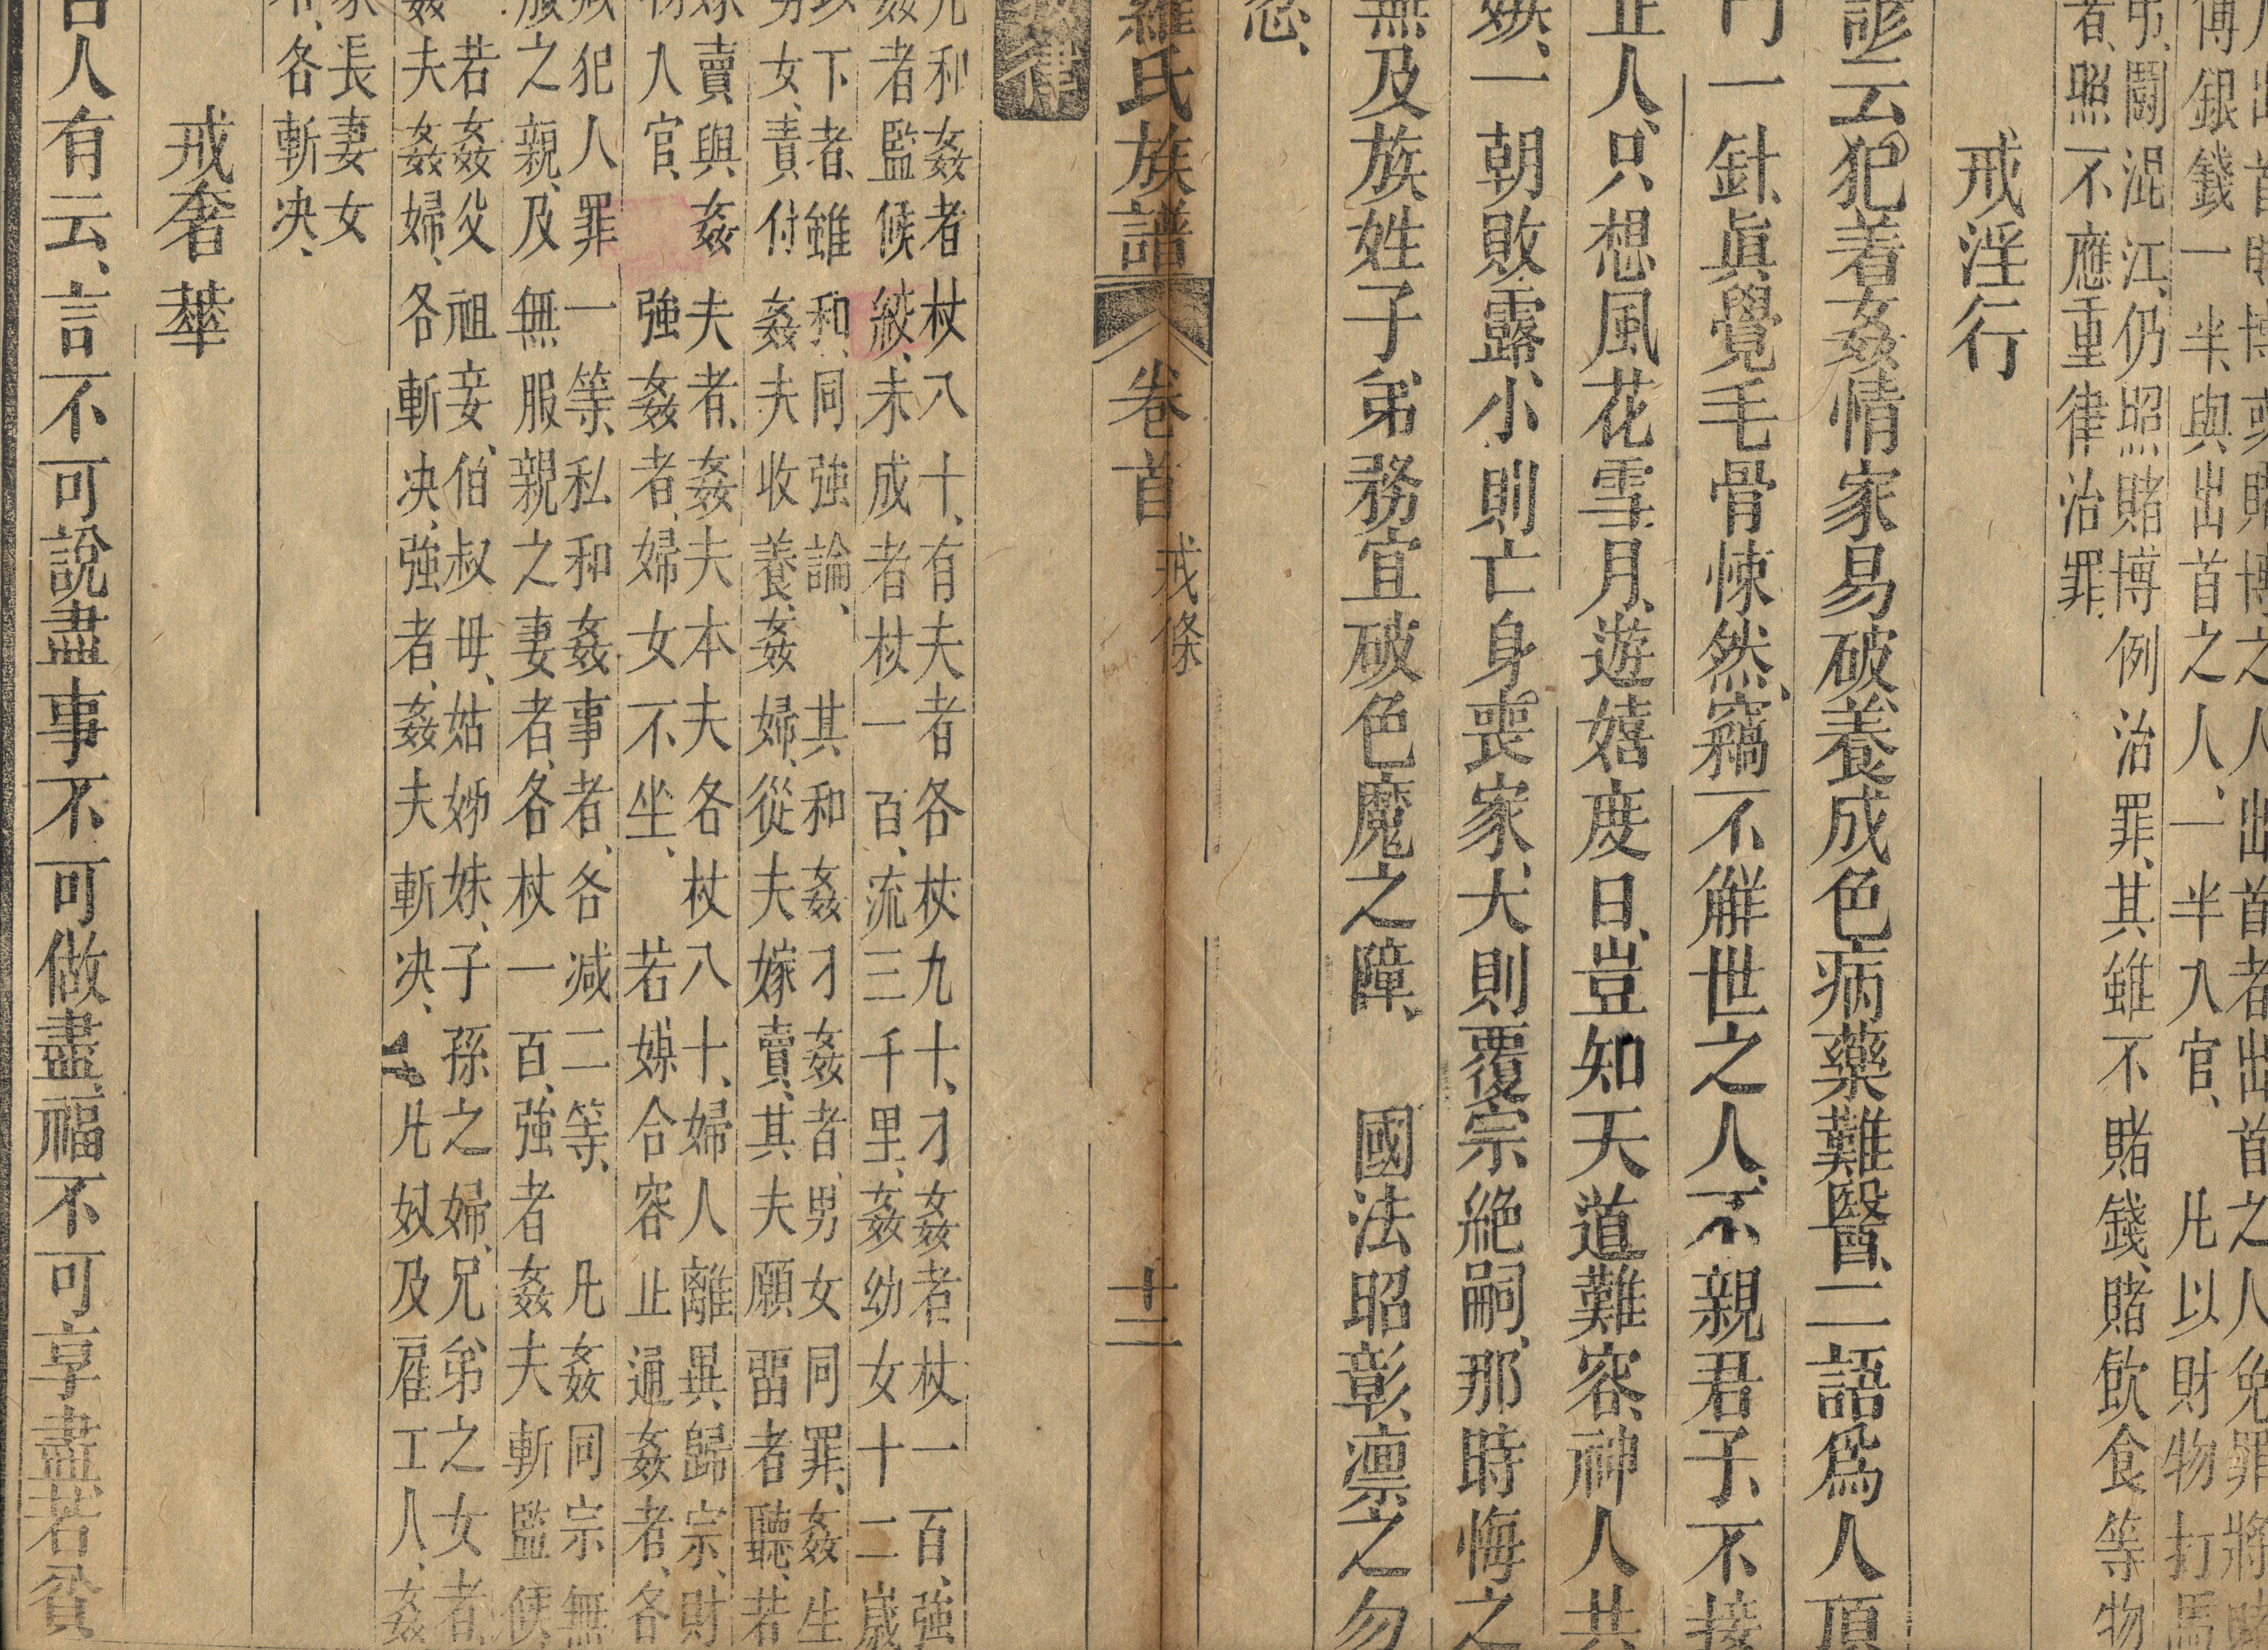 出首賭博或賭博之人出首者出首之人免罪將賭
博銀錢一半與出首之人一半入官凡以財物打馬
弔鬭混江仍照賭博例治罪其雖不賭錢賭飲食等物
者照不應重律治罪
戒淫行
諺云犯着姦情家易破養成色病藥難醫二語爲人頂
門一針眞覺毛骨悚然竊不解世之人不親君子不接
正人只想風花雪月遊嬉度日豈知天道難容神人共
嫉一朝敗露小則亡身喪家大則覆宗絶嗣那時悔之
無及族姓子弟務宜破色魔之障 國法昭彰凛之勿
忽
羅氏族譜 卷首 戒條 十二
律
凡和姦者杖八十有夫者各杖九十刁姦者杖一百強
姦者監候絞未成者杖一百流三千里姦幼女十二歲
以下者雖和同強論 其和姦刁姦者男女同罪姦生
男女責付姦夫收養姦婦從夫嫁賣其夫願留者聽若
嫁賣與姦夫者姦夫本夫各杖八十婦人離異歸宗財
物入官 強姦者婦女不坐 若媒合容止通姦者各
減犯人罪一等私和姦事者各减二等 凡姦同宗無
服之親及無服親之妻者各杖一百強者姦夫斬監候
若姦父祖妾伯叔母姑姊妹子孫之婦兄弟之女者
姦夫姦婦各斬决強者姦夫斬决 凡奴及雇工人姦
家長妻女
者各斬决
戒奢華
古人有云言不可說盡事不可做盡福不可享盡若貧